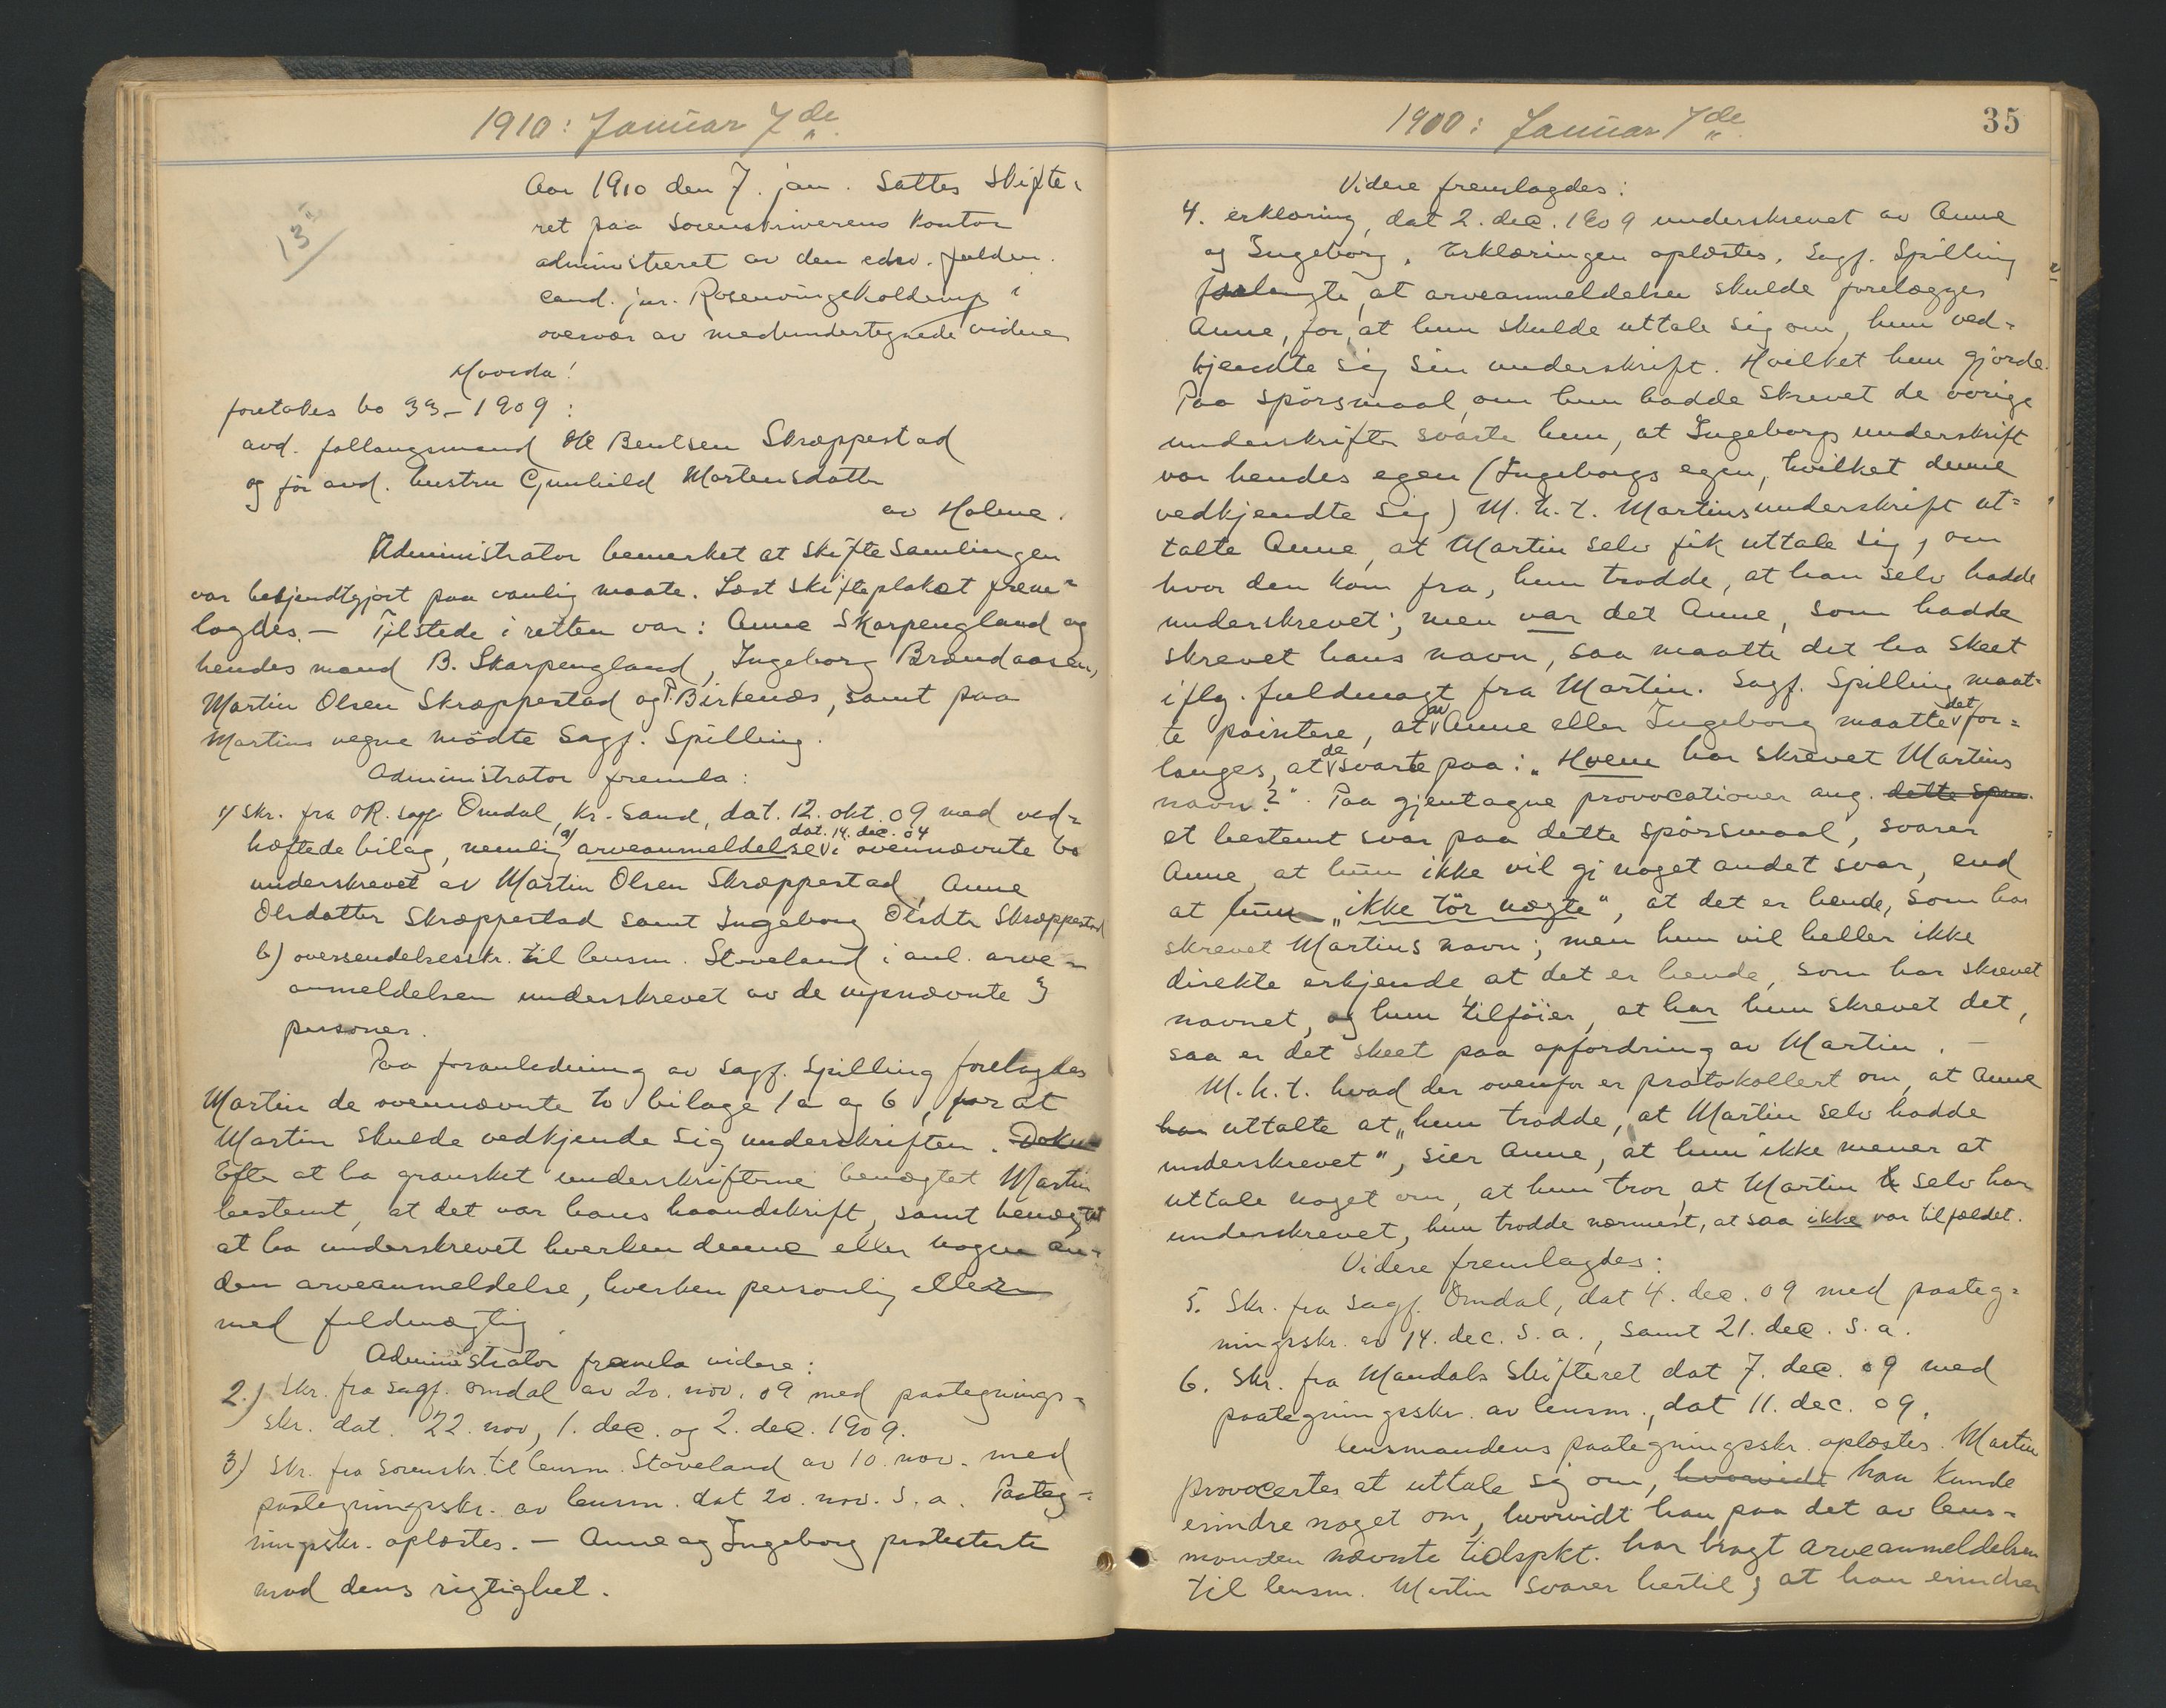 1910: Januar 7de
13
Aar 1910 den 7. jan. sattes Skifte-
ret paa Sorenskriverens kontor
administreret av den edsv. fuldm.
cand. jur. Rosenvinge Kolderup i
overvær av medundertegnede vidne
Hvorda!
foretokes bo 33-1909:
avd. follaugsmand Ole Bentsen Skræppestad
og før avd. hustru Gunhild Mortensdatter
av Holme.
Administrator bemerket at skiftesamlingen
var bekjendtgjort paa vanlig maate. Læst skifteplakat frem-
lagdes. — Tilstede i retten var: Anne Skarpengland og
hendes mand B. Skarpengland, Ingeborg Brændaasen,
Martin Olsen Skræppestad og Birkenæs, samt paa
Martins vegne mödte Sagf. Spilling.
Administrator fremla:
1) Skr. fra OR. sagf. Omdal, Kr.sand, dat. 12. okt. 09 med ved-
hæftede bilag, nemlig a) arveanmeldelse dat. 14. dec. 04 i ovennævnte bo
underskrevet av Martin Olsen Skræppestad, Anne
Olsdatter Skræppestad samt Ingeborg Olsdtr Skræppestad
b) oversendelsesskr. til lensm. Stoveland i anl. arve-
anmeldelsen underskrevet av de nysnævnte 3
personer.
Paa foranledning av sagf. Spilling forelagdes
Martin de ovennævnte to bilage 1a og b, for at
Martin skulde vedkjende sig underskriften. Doku
Efter at ha gransket underskrifterne benægtet Martin
bestemt, at det var hans haandskrift, samt benægtet
at ha underskrevet hverken denne eller nogen an-
den arveanmeldelse, hverken personlig eller
med fuldmægtig.
Administrator fremla videre:
2.) Skr. fra sagf. Omdal av 20. nov. 09 med paategnings-
skr. dat. 22. nov, 1. dec. og 2. dec. 1909.
3) Skr. fra Sorenskr. til lensm. Stoveland av 10. nov. med
paategningsskr. av lensm. dat 20. nov. s. a. Paateg-
ningsskr. oplæstes. — Anne og Ingeborg protesterte
mod dens rigtighet.
1900: Januar 7de
35
Videre fremlagdes:
4. erklæring, dat 2. dec. 1909 underskrevet av Anne
og Ingeborg. Erklæringen oplæstes. Sagf. Spilling
forlangte, at arveanmeldelsen skulde forelægges
Anne, for, at hun skulde uttale sig om, hun ved-
kjendte sig sin underskrift. Hvilket hun gjorde.
Paa spörsmaal, om hun hadde skrevet de övrige
underskrifter svarte hun, at Ingeborgs underskrift
var hendes egen (Ingeborgs egen, hvilket denne
vedkjendte sig) M. h. t. Martins underskrift ut-
talte Anne, at Martin selv fik uttale sig, om
hvor den kom fra, hun trodde, at han selv hadde
underskrevet; men var det Anne, som hadde
skrevet hans navn, saa maatte det ha skeet
iflg. fuldmagt fra Martin. Sagf. Spilling maat-
te pointere, at av Anne eller Ingeborg maatte det for-
langes, at de svarte paa: "Hvem har skrevet Martins
navn?". Paa gjentagne provocationer ang. dette spm.
et bestemt svar paa dette spörsmaal, svarer
Anne, at hun ikke vil gi noget andet svar, end
at hun "ikke tör nægte", at det er hende, som har
skrevet Martins navn; men hun vil heller ikke
direkte erkjende at det er hende, som har skrevet
navnet, og hun tilföier, at har hun skrevet det,
saa er det skeet paa opfordring av Martin. —
M. h. t. hvad der ovenfor er protokollert om, at Anne
har uttalte at "hun trodde, at Martin selv hadde
underskrevet", sier Anne, at hun ikke mener at
uttale noget om, at hun tror, at Martin selv har
underskrevet, hun trodde nærmest, at saa ikke var tilfældet.
Videre fremlagdes:
5. Skr. fra sagf. Omdal, dat 4. dec. 09 med paateg-
ningsskr. av 14. dec. s. a., samt 21. dec. s. a.
6. Skr. fra Mandals Skifteret dat 7. dec. 09 med
paategningsskr. av lensm., dat 11. dec. 09.
lensmandens paategningsskr. oplæstes. Martin
provocertes at uttale sig om, hvorvidt han kunde
erindre noget om, hvorvidt han paa det av lens-
manden nævnte tidspkt. har bragt arveanmeldelsen
til lensm. Martin svarer hertil, at han erindrer